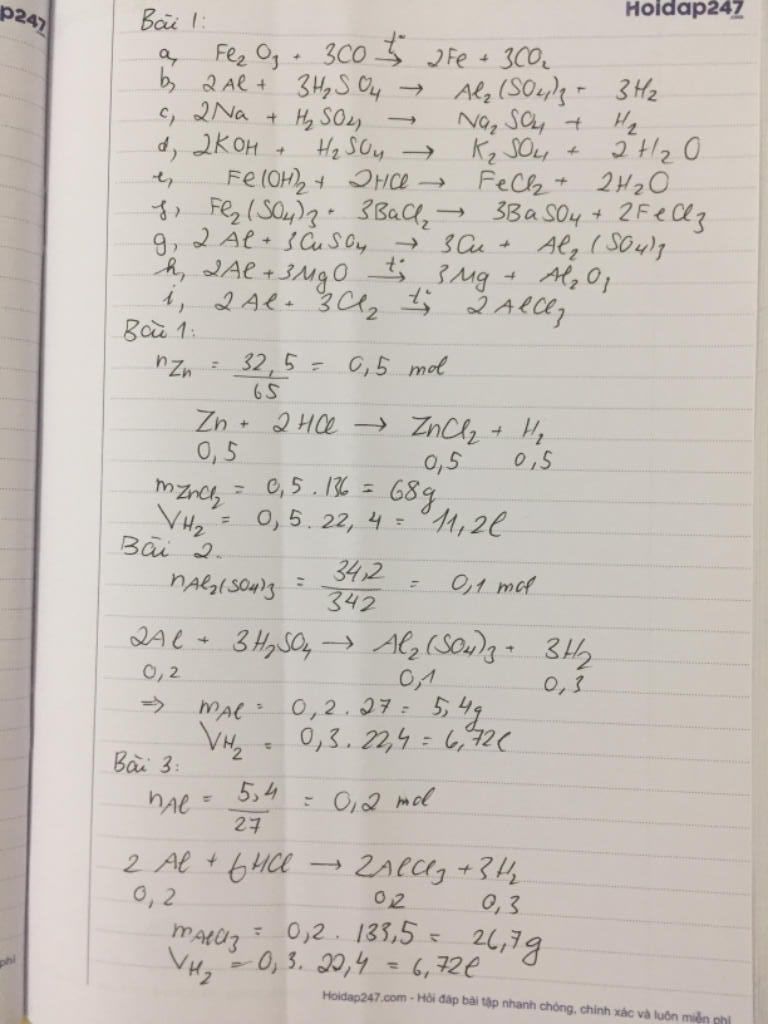 p247
Hoidap247
Bài 1:
a, Fe₂O₃ + 3CO t°→ 2Fe + 3CO₂
b, 2Al + 3H₂SO₄ → Al₂(SO₄)₃ + 3H₂
c, 2Na + H₂SO₄ → Na₂SO₄ + H₂
d, 2KOH + H₂SO₄ → K₂SO₄ + 2H₂O
e, Fe(OH)₂ + 2HCl → FeCl₂ + 2H₂O
f, Fe₂(SO₄)₃ + 3BaCl₂ → 3BaSO₄ + 2FeCl₃
g, 2Al + 3CuSO₄ → 3Cu + Al₂(SO₄)₃
h, 2Al + 3MgO t°→ 3Mg + Al₂O₃
i, 2Al + 3Cl₂ t°→ 2AlCl₃
Bài 1:
nZn = 32,5/65 = 0,5 mol
Zn + 2HCl → ZnCl₂ + H₂
0,5 0,5 0,5
mZnCl₂ = 0,5 . 136 = 68g
VH₂ = 0,5 . 22,4 = 11,2l
Bài 2.
nAl₂(SO₄)₃ = 34,2/342 = 0,1 mol
2Al + 3H₂SO₄ → Al₂(SO₄)₃ + 3H₂
0,2 0,1 0,3
=> mAl = 0,2 . 27 = 5,4g
VH₂ = 0,3 . 22,4 = 6,72l
Bài 3:
nAl = 5,4/27 = 0,2 mol
2Al + 6HCl → 2AlCl₃ + 3H₂
0,2 0,2 0,3
mAlCl₃ = 0,2 . 133,5 = 26,7g
VH₂ = 0,3 . 22,4 = 6,72l
phí
Hoidap247.com - Hỏi đáp bài tập nhanh chóng, chính xác và luôn miễn phí